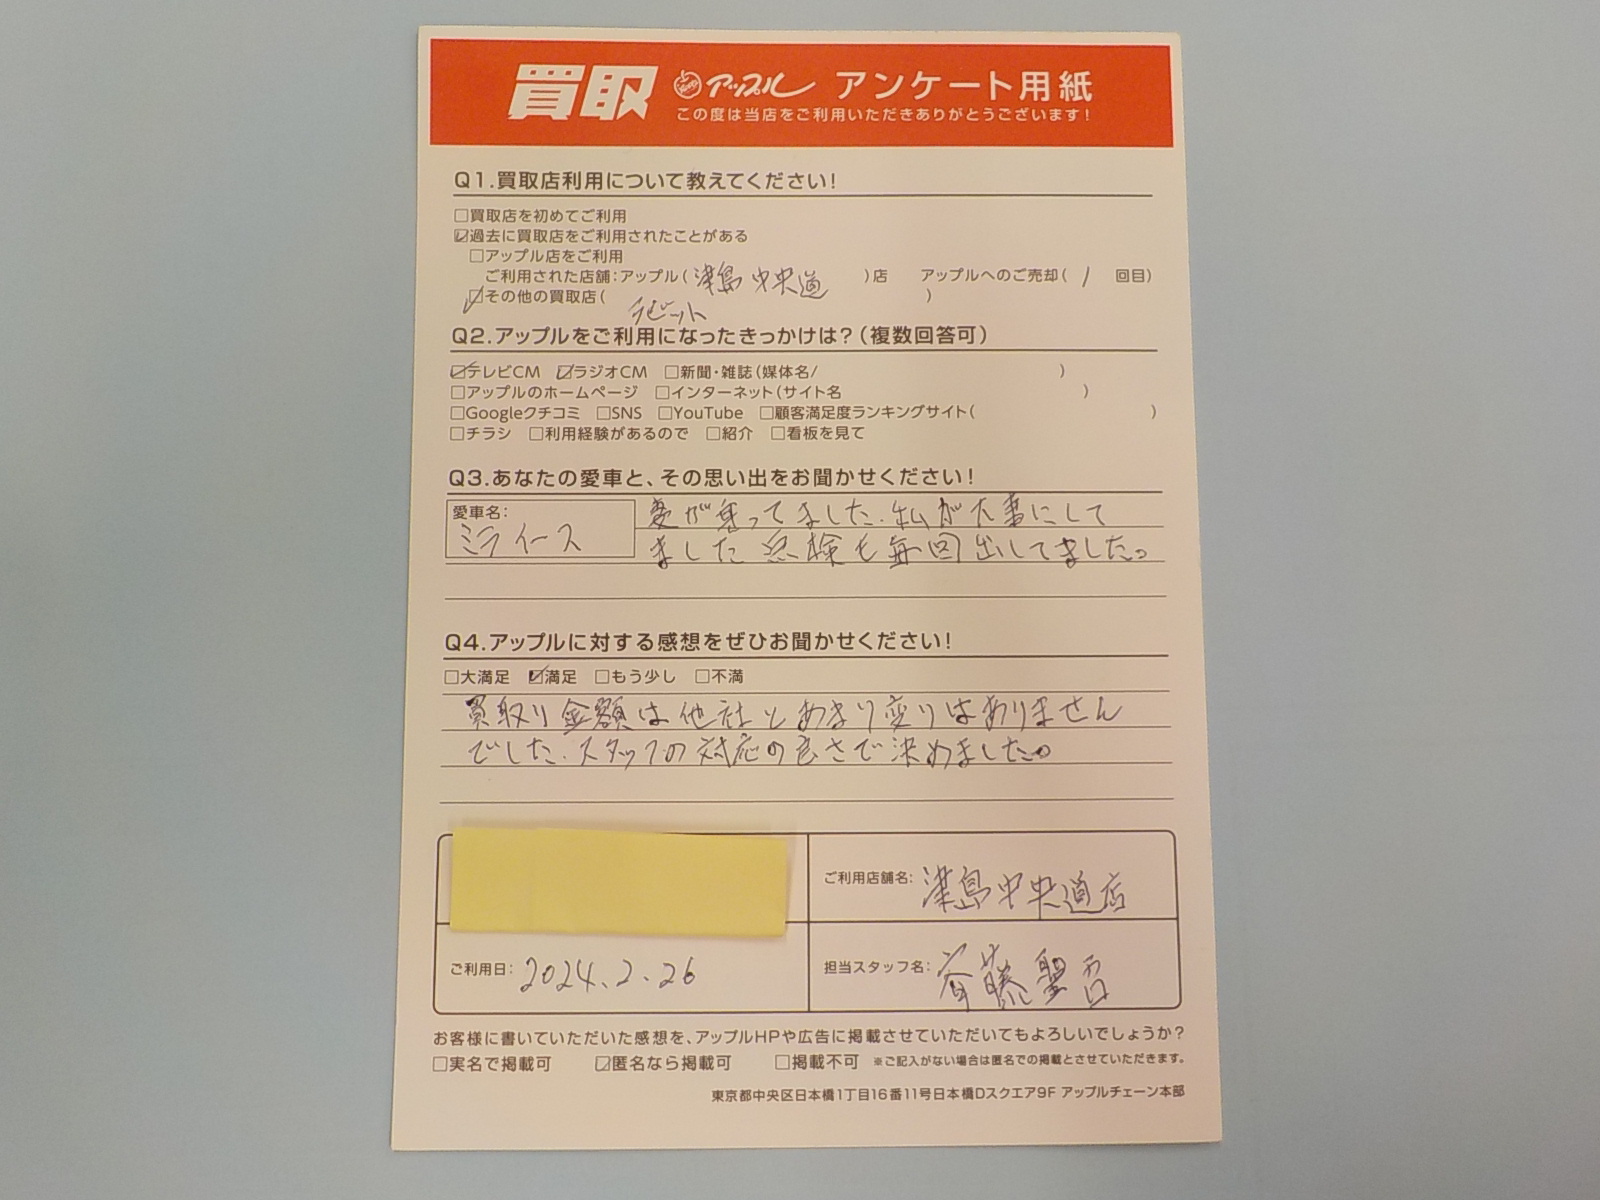 買取 アップル アンケート用紙
この度は当店をご利用いただきありがとうございます!
Q1.買取店利用について教えてください!
□買取店を初めてご利用
☑過去に買取店をご利用されたことがある
□アップル店をご利用
ご利用された店舗:アップル(津島中央道)店 アップルへのご売却(1回目)
☑その他の買取店(ラビット)
Q2.アップルをご利用になったきっかけは?(複数回答可)
☑テレビCM ☑ラジオCM □新聞・雑誌(媒体名/ )
□アップルのホームページ □インターネット(サイト名 )
□Googleクチコミ □SNS □YouTube □顧客満足度ランキングサイト( )
□チラシ □利用経験があるので □紹介 □看板を見て
Q3.あなたの愛車と、その思い出をお聞かせください!
愛車名:
ミライース
妻が乗ってました.私が大事にして
ました点検も毎回出してました。
Q4.アップルに対する感想をぜひお聞かせください!
□大満足 ☑満足 □もう少し □不満
買取り金額は他社とあまり変りはありません
でした.スタッフの対応の良さで決めました。
ご利用店舗名:津島中央道店
ご利用日:2024.2.26
担当スタッフ名:斉藤聖
お客様に書いていただいた感想を、アップルHPや広告に掲載させていただいてもよろしいでしょうか?
□実名で掲載可 ☑匿名なら掲載可 □掲載不可 ※ご記入がない場合は匿名での掲載とさせていただきます。
東京都中央区日本橋1丁目16番11号日本橋Dスクエア9F アップルチェーン本部